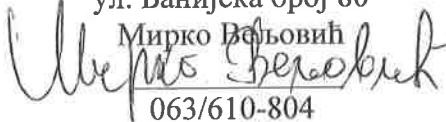 ул. Банијска број 80
Мирко Вељовић
Мирко Вељовић
063/610-804